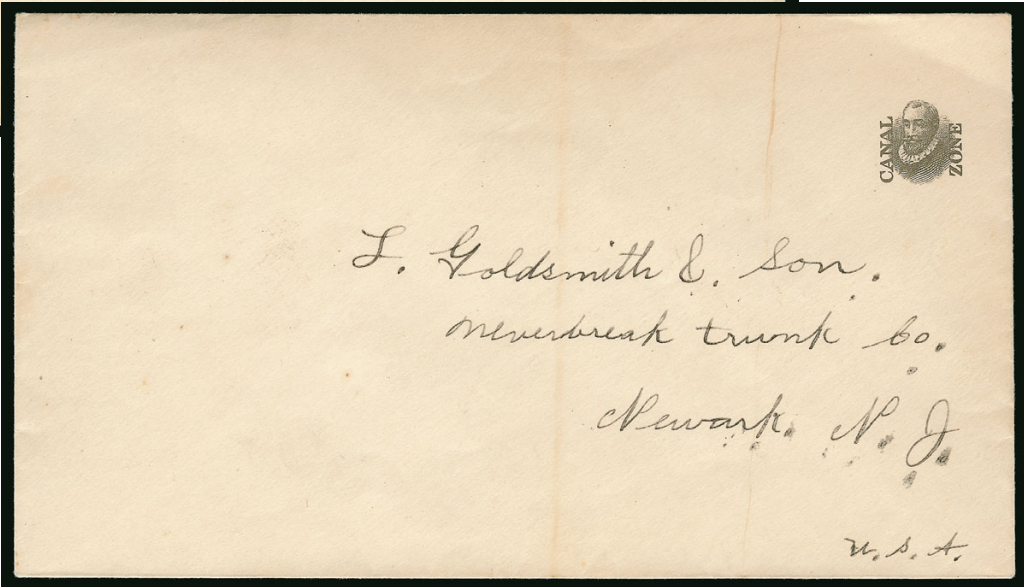 CANAL ZONE
L. Goldsmith & Son.
Neverbreak trunk Co.
Newark. N. J.
U. S. A.